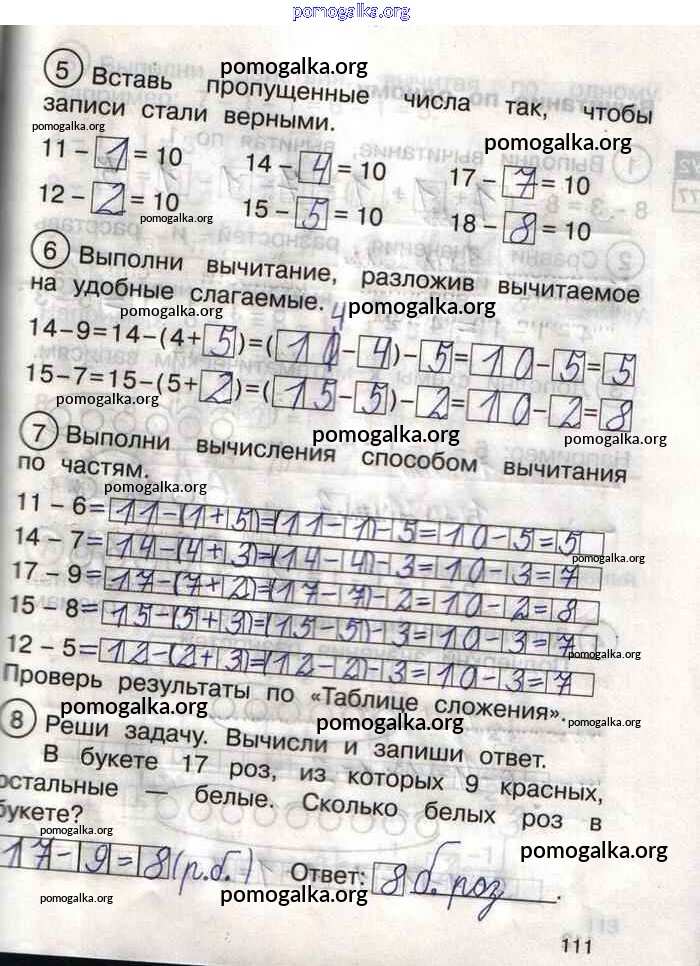 pomogalka.org
5 Вставь пропущенные числа так, чтобы
pomogalka.org
записи стали верными.
pomogalka.org
pomogalka.org
11 – 1 = 10 14 – 4 = 10 17 – 7 = 10
12 – 2 = 10 15 – 5 = 10 18 – 8 = 10
pomogalka.org
6 Выполни вычитание, разложив вычитаемое
на удобные слагаемые.
pomogalka.org
pomogalka.org
14–9=14–(4+5)=(14–4)–5=10–5=5
15–7=15–(5+2)=(15–5)–2=10–2=8
pomogalka.org
pomogalka.org
pomogalka.org
7 Выполни вычисления способом вычитания
по частям.
pomogalka.org
11 – 6=11–(1+5)=(11–1)–5=10–5=5
14 – 7=14–(4+3)=(14–4)–3=10–3=7
pomogalka.org
17 – 9=17–(7+2)=(17–7)–2=10–2=8
15 – 8=15–(5+3)=(15–5)–3=10–3=7
12 – 5=12–(2+3)=(12–2)–3=10–3=7
pomogalka.org
Проверь результаты по «Таблице сложения».
pomogalka.org
pomogalka.org
pomogalka.org
8 Реши задачу. Вычисли и запиши ответ.
В букете 17 роз, из которых 9 красных,
остальные — белые. Сколько белых роз в
букете?
pomogalka.org
pomogalka.org
17–9=8(р.б.) Ответ: 8 б. роз.
pomogalka.org
pomogalka.org
pomogalka.org
111